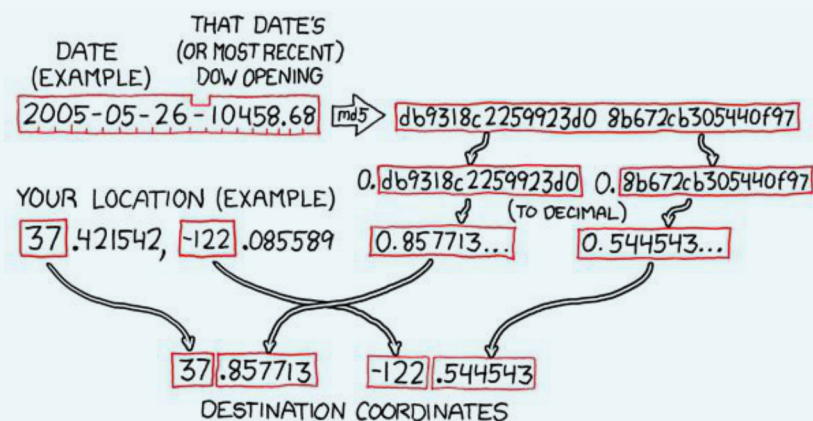 DATE
(EXAMPLE)
THAT DATE'S
(OR MOST RECENT)
DOW OPENING
2005-05-26-10458.68
md5
db9318c2259923d0 8b672cb305440f97
0.db9318c2259923d0 0.8b672cb305440f97
YOUR LOCATION (EXAMPLE)
(TO DECIMAL)
37.421542, -122.085589
0.857713... 0.544543...
37.857713 -122.544543
DESTINATION COORDINATES